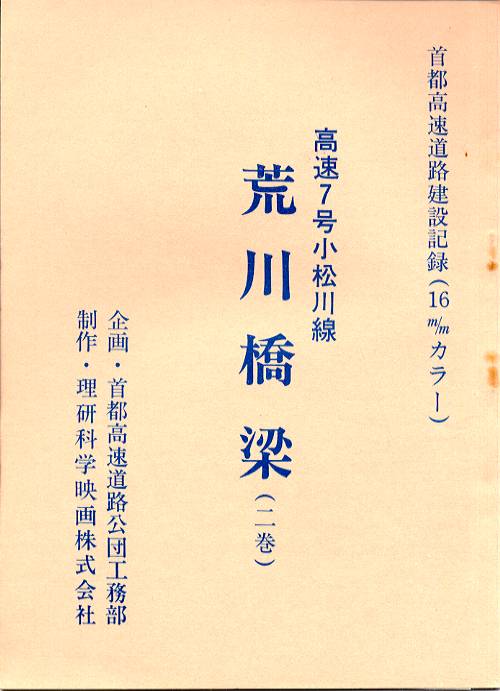 首都高速道路建設記録(16m/mカラー)
高速7号小松川線
荒川橋梁(二巻)
企画・首都高速道路公団工務部
制作・理研科学映画株式会社